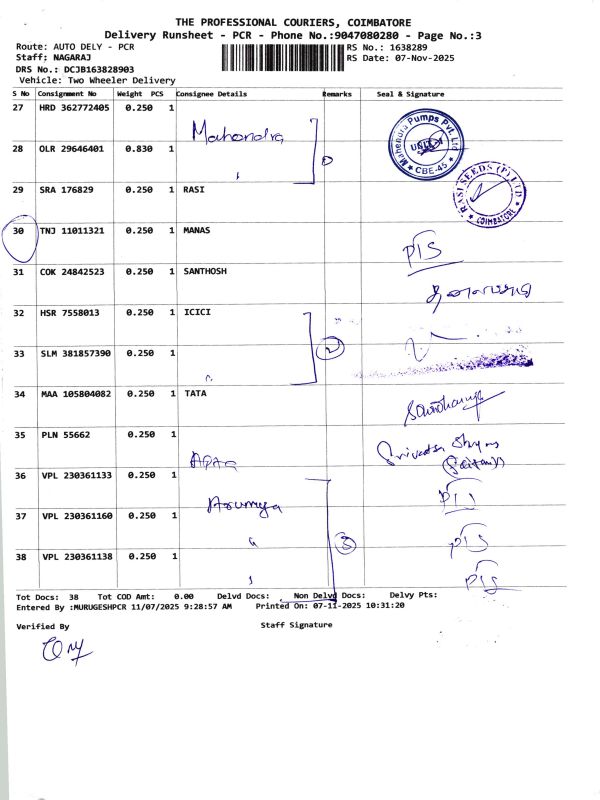 THE PROFESSIONAL COURIERS, COIMBATORE
Delivery Runsheet - PCR - Phone No.:9047080280 - Page No.:3
Route: AUTO DELY - PCR RS No.: 1638289
Staff: NAGARAJ RS Date: 07-Nov-2025
DRS No.: DCJB163828903
Vehicle: Two Wheeler Delivery
S No Consignment No Weight PCS Consignee Details Remarks Seal & Signature
27 HRD 362772405 0.250 1
Mahendra
Mahendra Pumps Pvt. Ltd
UNIT-1
CBE-45
28 OLR 29646401 0.830 1
29 SRA 176829 0.250 1 RASI
RASI SEEDS (P) LTD
COIMBATORE
30 TNJ 11011321 0.250 1 MANAS
31 COK 24842523 0.250 1 SANTHOSH
32 HSR 7558013 0.250 1 ICICI
2
33 SLM 381857390 0.250 1
34 MAA 105804082 0.250 1 TATA
35 PLN 55662 0.250 1
36 VPL 230361133 0.250 1
37 VPL 230361160 0.250 1
3
38 VPL 230361138 0.250 1
Tot Docs: 38 Tot COD Amt: 0.00 Delvd Docs: Non Delvd Docs: Delvy Pts:
Entered By :MURUGESHPCR 11/07/2025 9:28:57 AM Printed On: 07-11-2025 10:31:20
Verified By Staff Signature